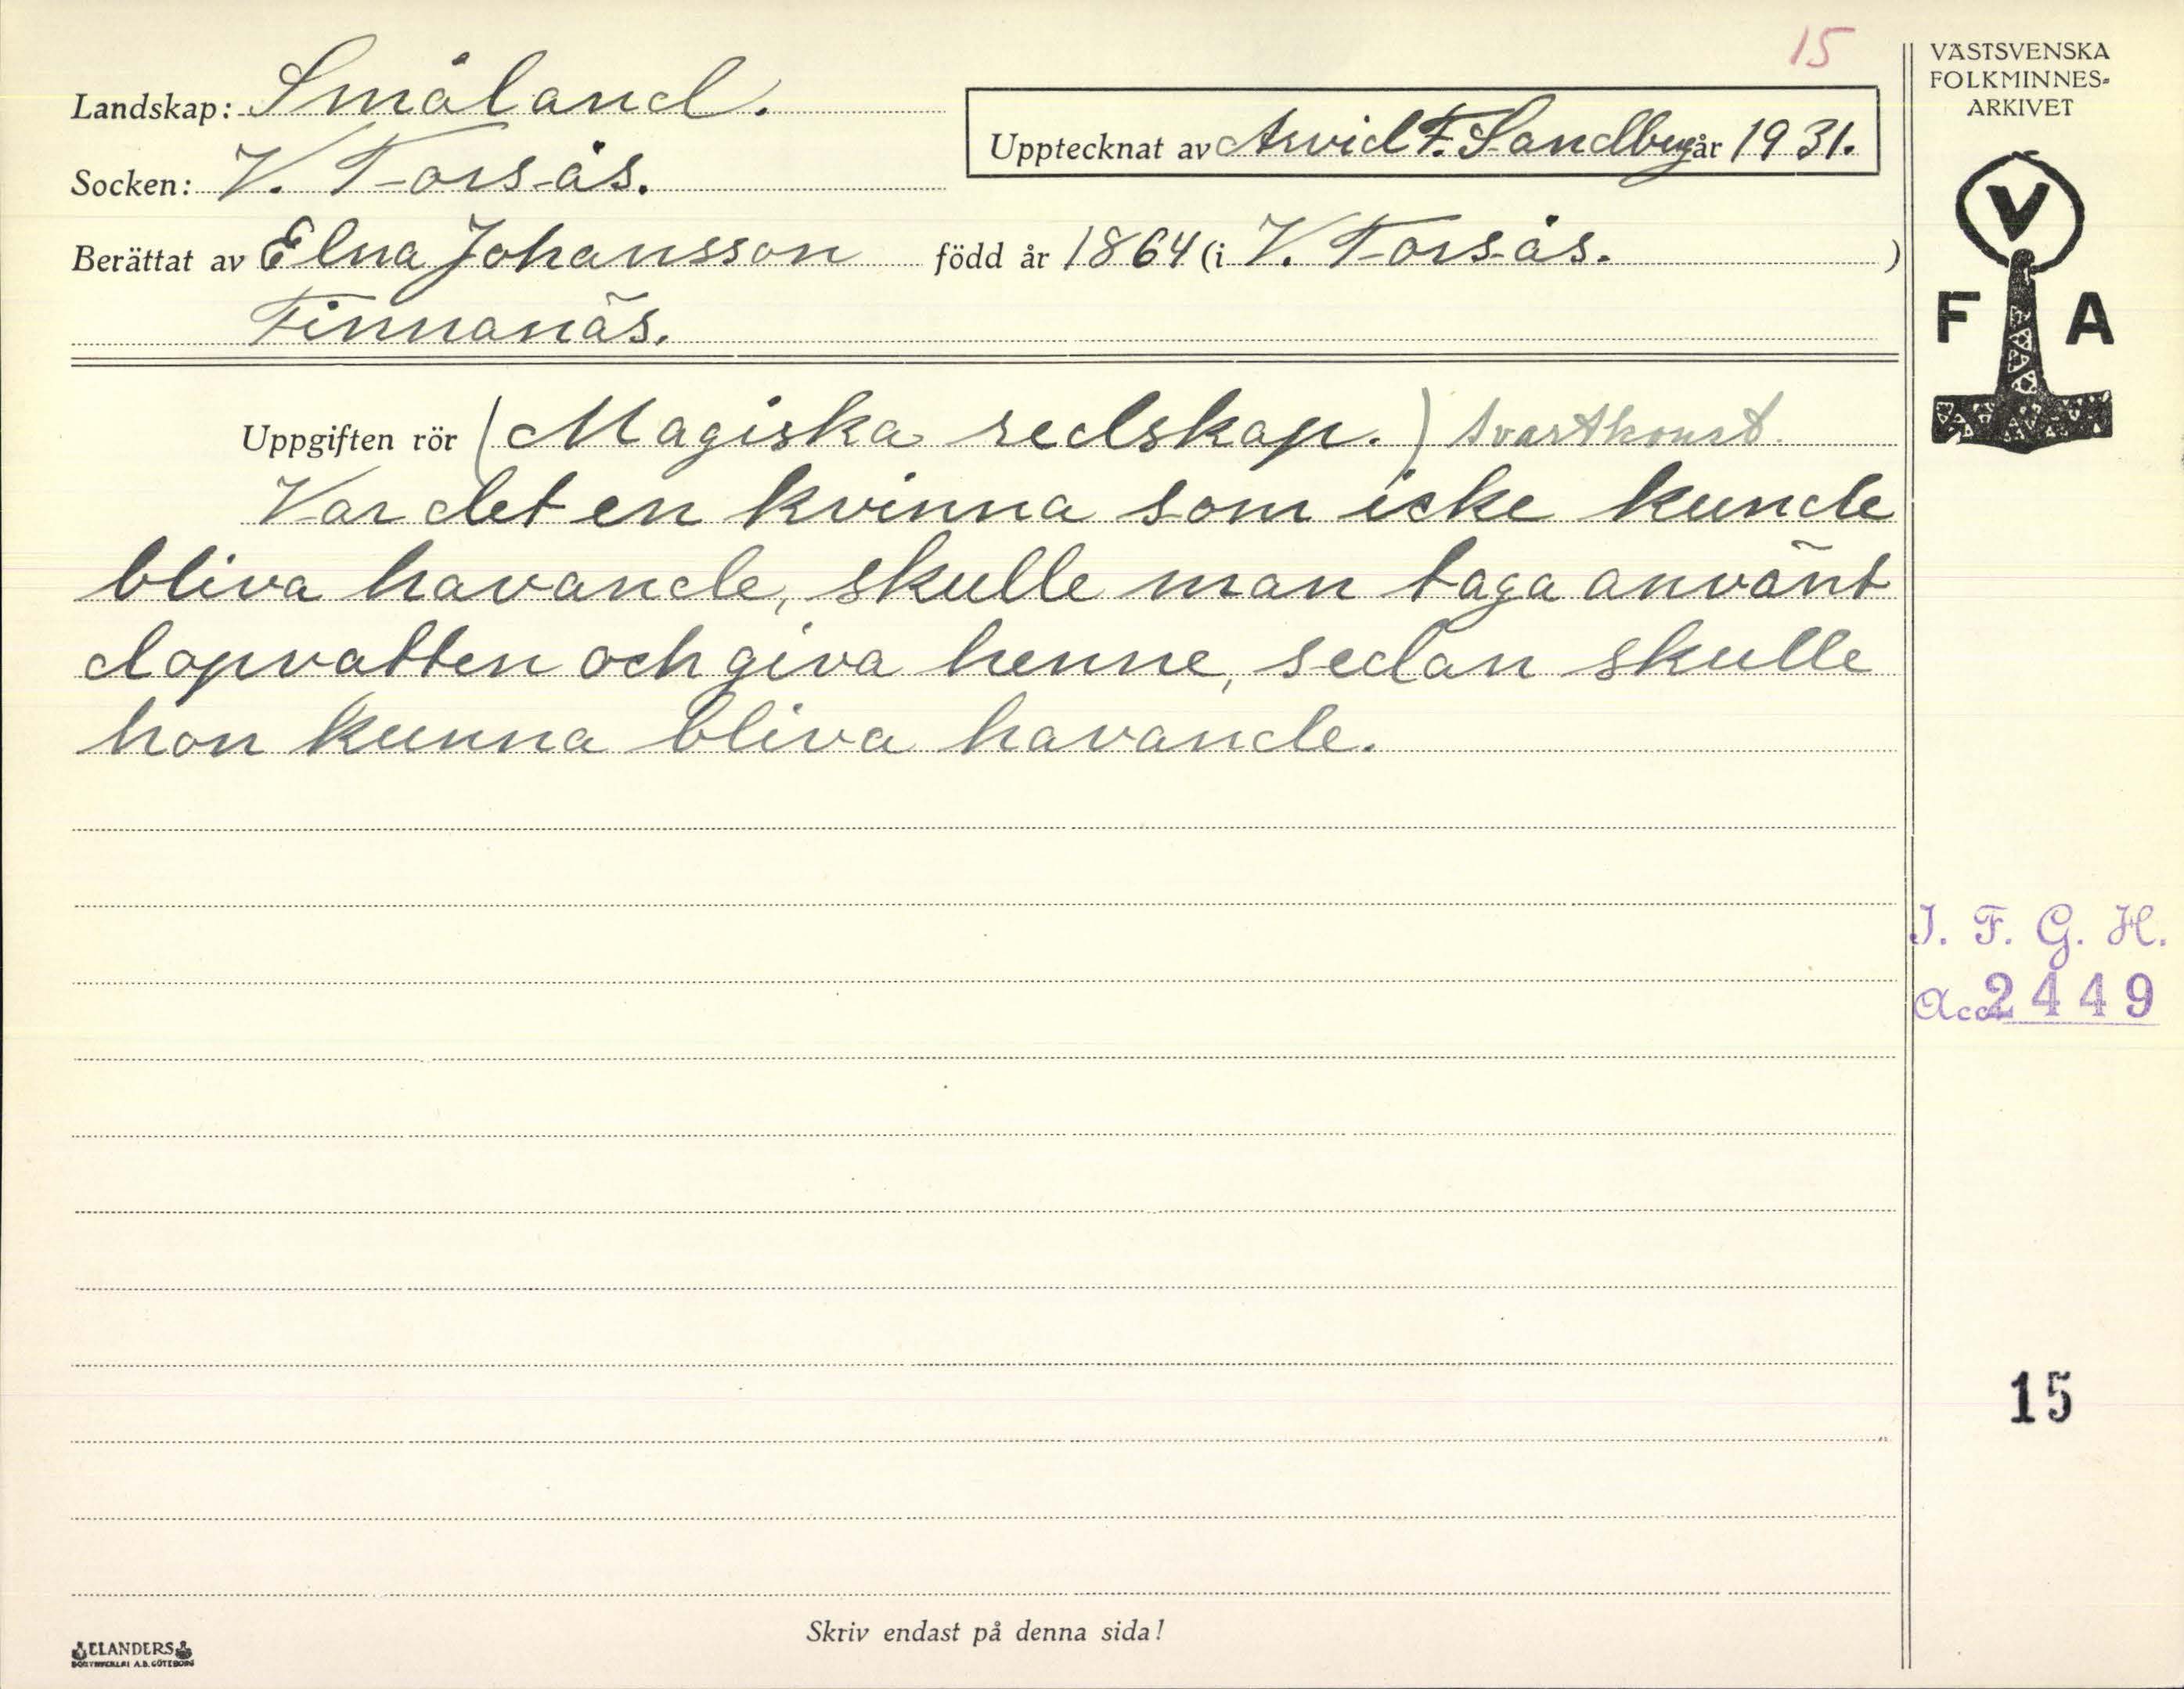 15
VÄSTSVENSKA
FOLKMINNES-
ARKIVET
Landskap: Småland.
Upptecknat av Arvid F. Sandberg år 1931.
Socken: V. Torsås.
Berättat av Elna Johansson född år 1864 (i V. Torsås.)
Finnanäs.
V
F A
Uppgiften rör (Magiska redskap.) Svartkonst.
Var det en kvinna som icke kunde
bliva havande, skulle man taga använt
dopvatten och giva henne, sedan skulle
hon kunna bliva havande.
I. F. G. H.
Acc. 2449
15
Skriv endast på denna sida!
ELANDERS
BOKTRYCKERI A.B. GÖTEBORG